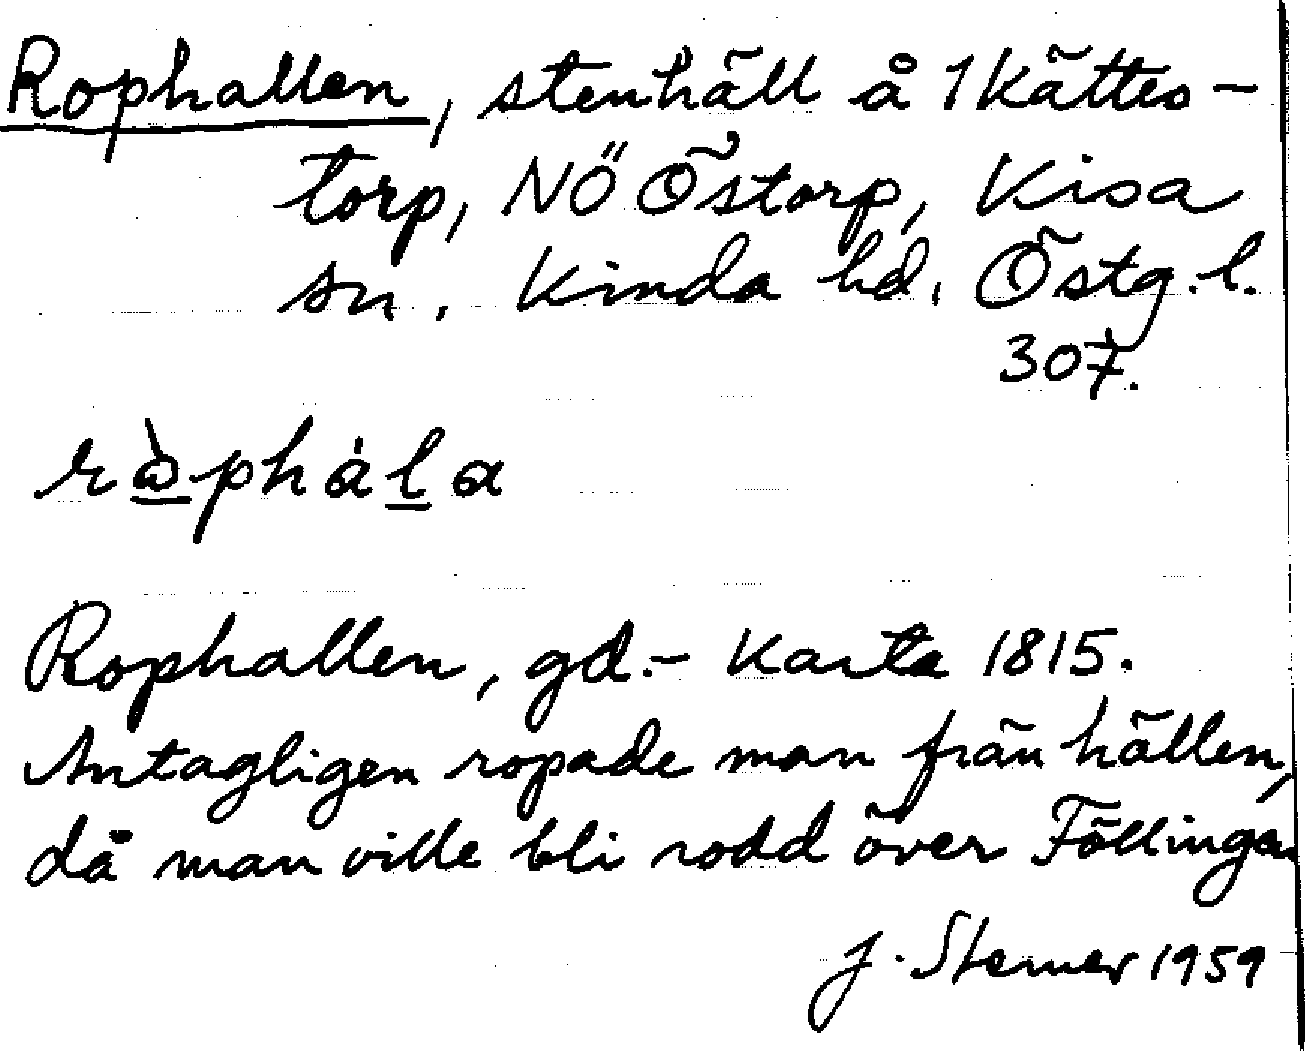 Rophallen, stenhäll å 1 Kättes-
torp, NÖ Östorp, Kisa
sn. Kinda hd. Östg. l.
307.
ròphála
Rophallen, gd.- Karta 1815.
Antagligen ropade man från hällen,
då man ville bli rodd över Föllingen
J. Sterner 1959